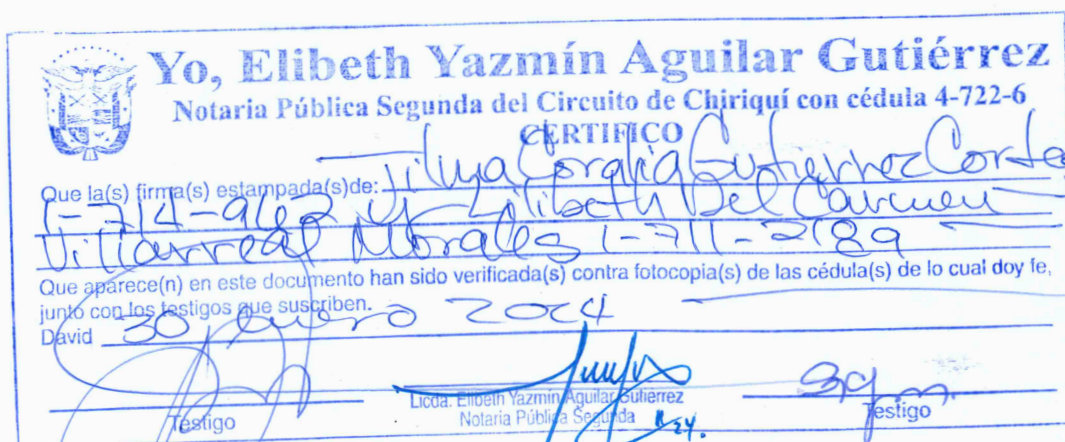 Yo, Elibeth Yazmín Aguilar Gutiérrez
Notaria Pública Segunda del Circuito de Chiriquí con cédula 4-722-6
CERTIFICO
Que la(s) firma(s) estampada(s)de: Gutierrez Corte
1-714-962 y Lilibeth Del Carmen
Villarreal Morales 1-711-2189
Que aparece(n) en este documento han sido verificada(s) contra fotocopia(s) de las cédula(s) de lo cual doy fe,
junto con los testigos que suscriben.
David 30 enero 2024
Testigo
Licda. Elibeth Yazmín Aguilar Gutiérrez
Notaria Pública Segunda
Testigo